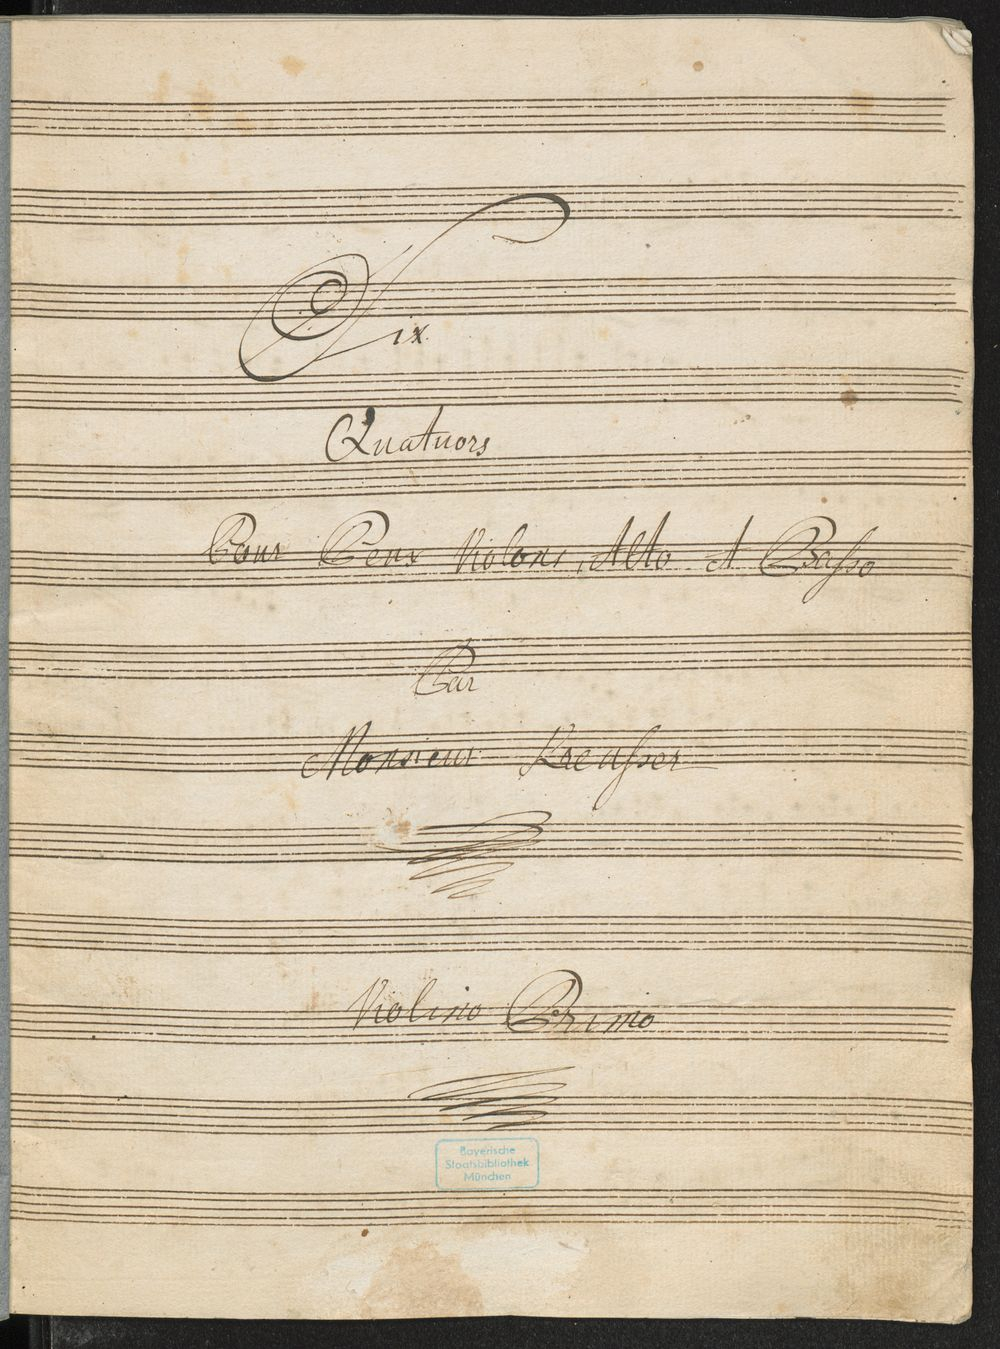 Six
Quatuors
Pour Deux Violons, Alto et Basso
Par
Monsieur Kreusser
Violino Primo
Bayerische
Staatsbibliothek
München